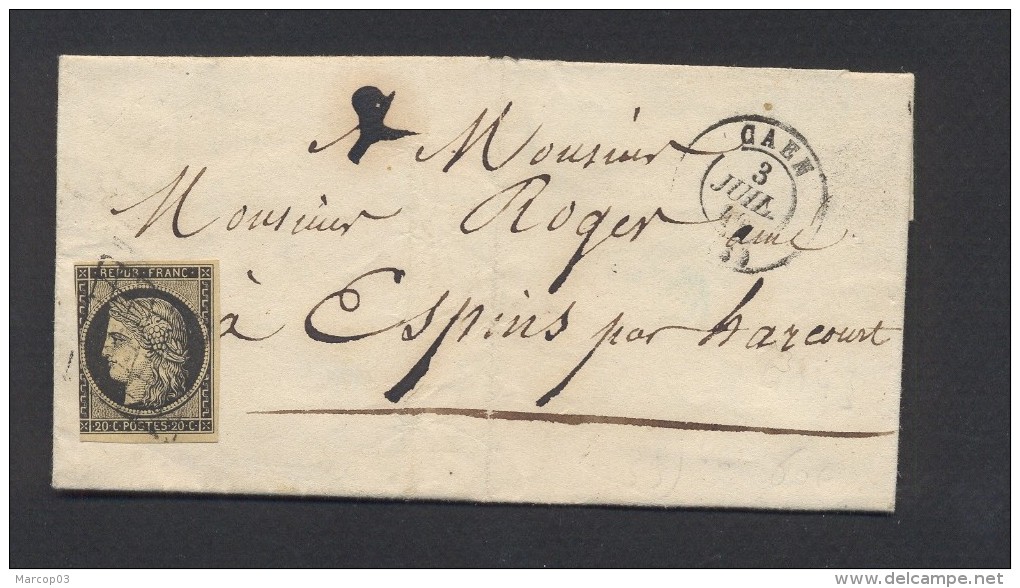 A Monsieur
Monsieur Roger ainé
à Espins par harcourt
CAEN
3
JUIL.
REPUB. FRANC.
20 • C • POSTES • 20 • C
Marcop03
www.delcampe.net